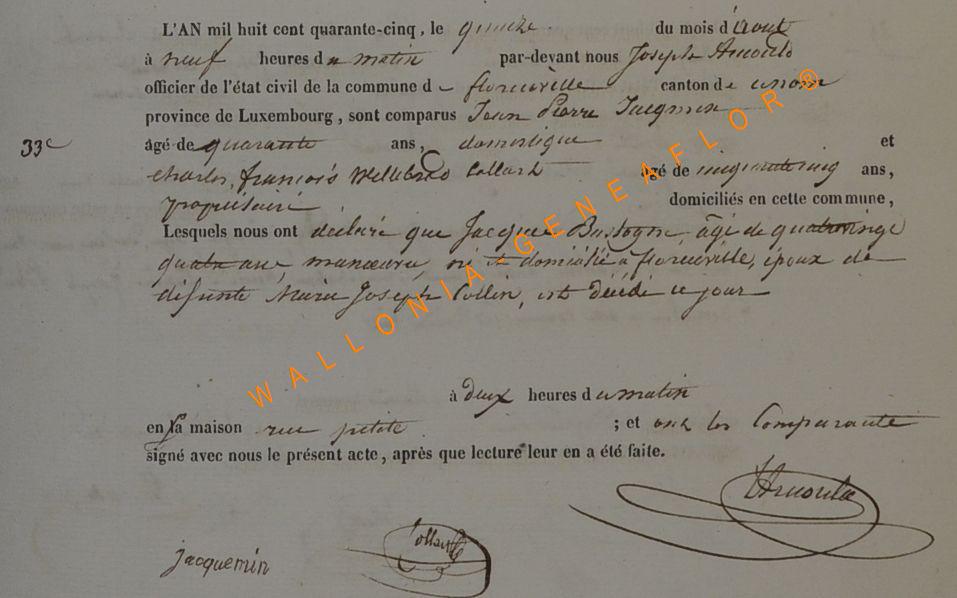 L'AN mil huit cent quarante-cinq, le quinze du mois d'Aout
à neuf heures du matin par-devant nous Joseph Arnould
officier de l'état civil de la commune de florenville canton de
province de Luxembourg, sont comparus Jean Pierre Jacqmin
33e âgé de quarante ans, domestique et
charles, françois Willebrod Collard âgé de cinquante cinq ans,
propriétaire domiciliés en cette commune,
Lesquels nous ont déclaré que Jacque Bastogne, âgé de quatrevingt
quatre ans, manœuvre, né et domicilié à florenville, époux de
défunte Marie Joseph Collin, est décédé ce jour
à deux heures du matin
en sa maison rue petite ; et ont les Comparants
signé avec nous le présent acte, après que lecture leur en a été faite.
Arnould
jacquemin Collard
WALLONIA-GENEAFLOR®